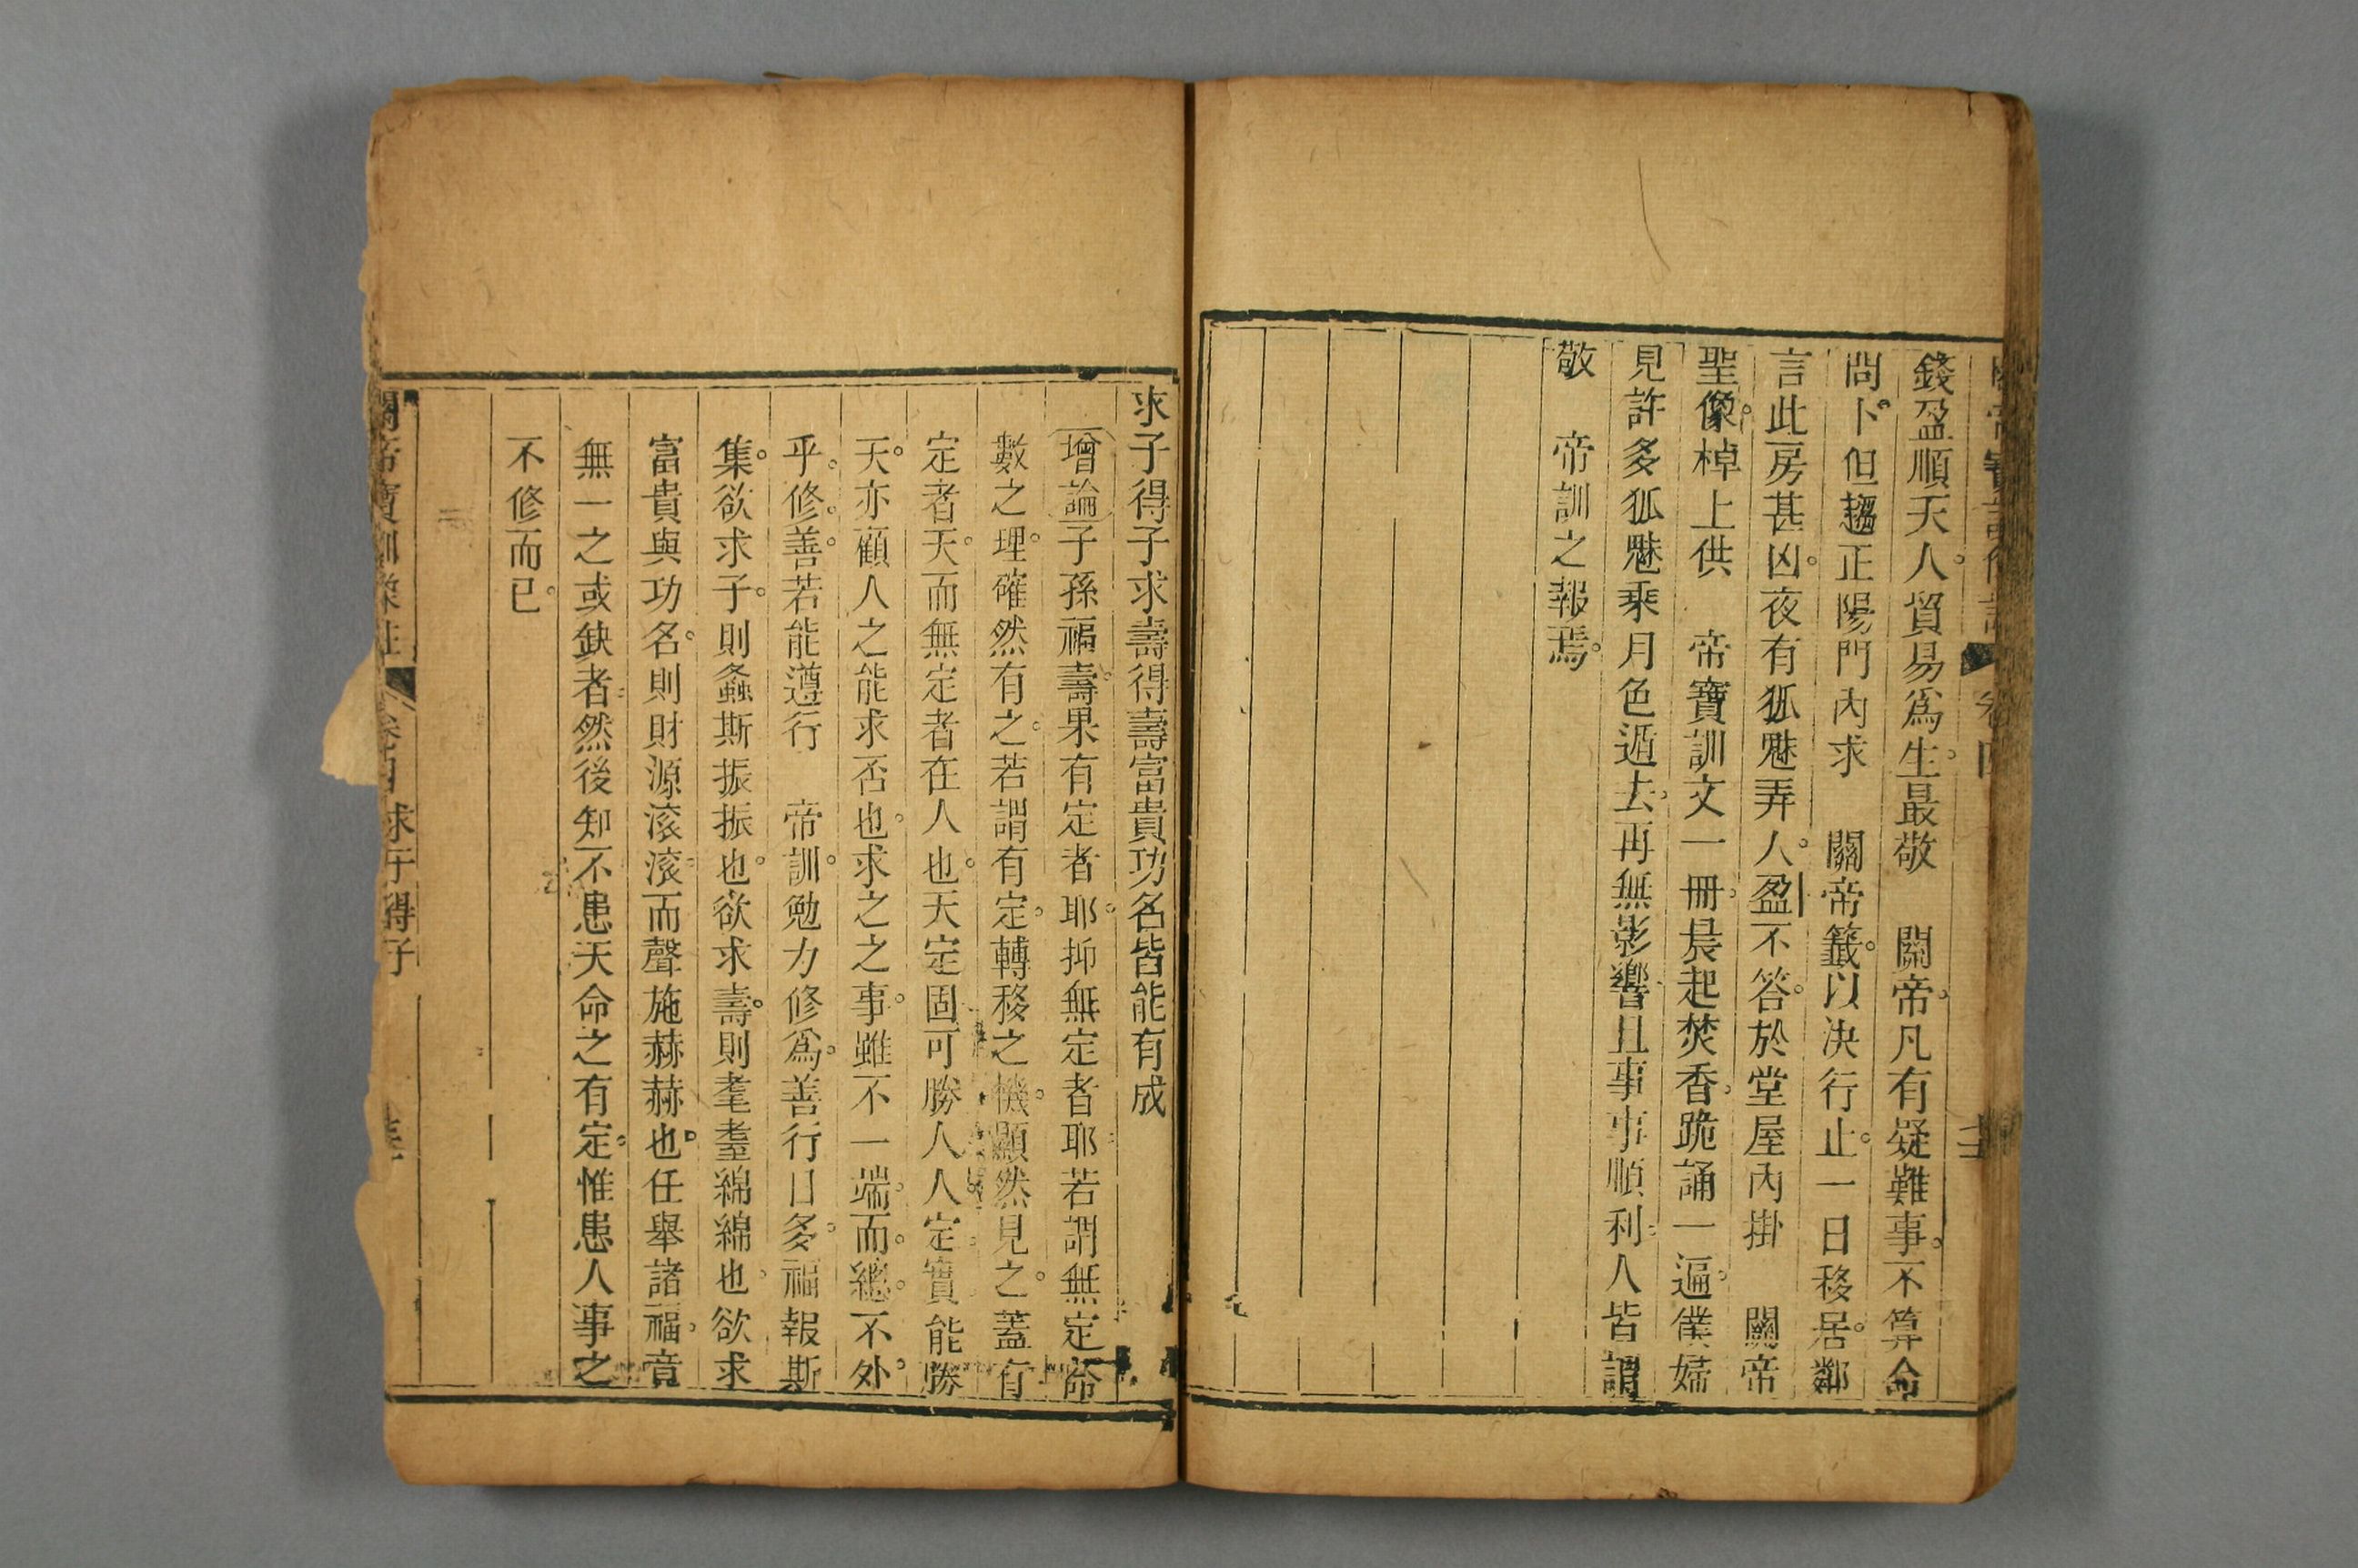 錢盈順天人。貿易爲生。最敬　關帝。凡有疑難事。不算命
問卜。但趨正陽門內求　關帝籤。以決行止。一日移居。鄰
言此房甚凶。夜有狐魅弄人。盈不答。於堂屋內掛　關帝
聖像。棹上供　帝寶訓文一冊。晨起焚香。跪誦一遍。僕婦
見許多狐魅乘月色遁去。再無影響。且事事順利。人皆謂
敬　帝訓之報焉。
求子得子求壽得壽富貴功名皆能有成
增論子孫福壽。果有定者耶。抑無定者耶。若謂無定。命
數之理。確然有之。若謂有定。轉移之機。顯然見之。蓋有
定者天。而無定者在人也。天定固可勝人。人定。實能勝
天。亦顧人之能求否也。求之之事。雖不一端。而總。不外。
乎。修。善。若能遵行　帝訓。勉力修爲。善行日多。福報斯
集。欲求子。則螽斯振振也。欲求壽。則耄耋綿綿也。欲求
富貴與功名。則財源滾滾。而聲施赫赫也。任舉諸福。音
無一之或缺者。然後知不患天命之有定。惟患人事之
不修而已。
關帝寶訓像註　卷四　求子得子